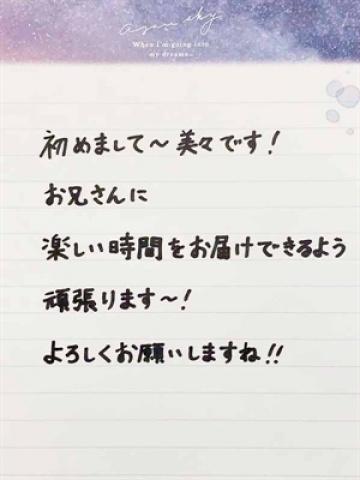 When I'm going into
my dreams...
初めまして～美々です!
お兄さんに
楽しい時間をお届けできるよう
頑張ります～!
よろしくお願いしますね!!